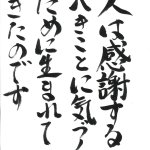 人は感謝する
べきことに気づ
ために生まれて
きたのです